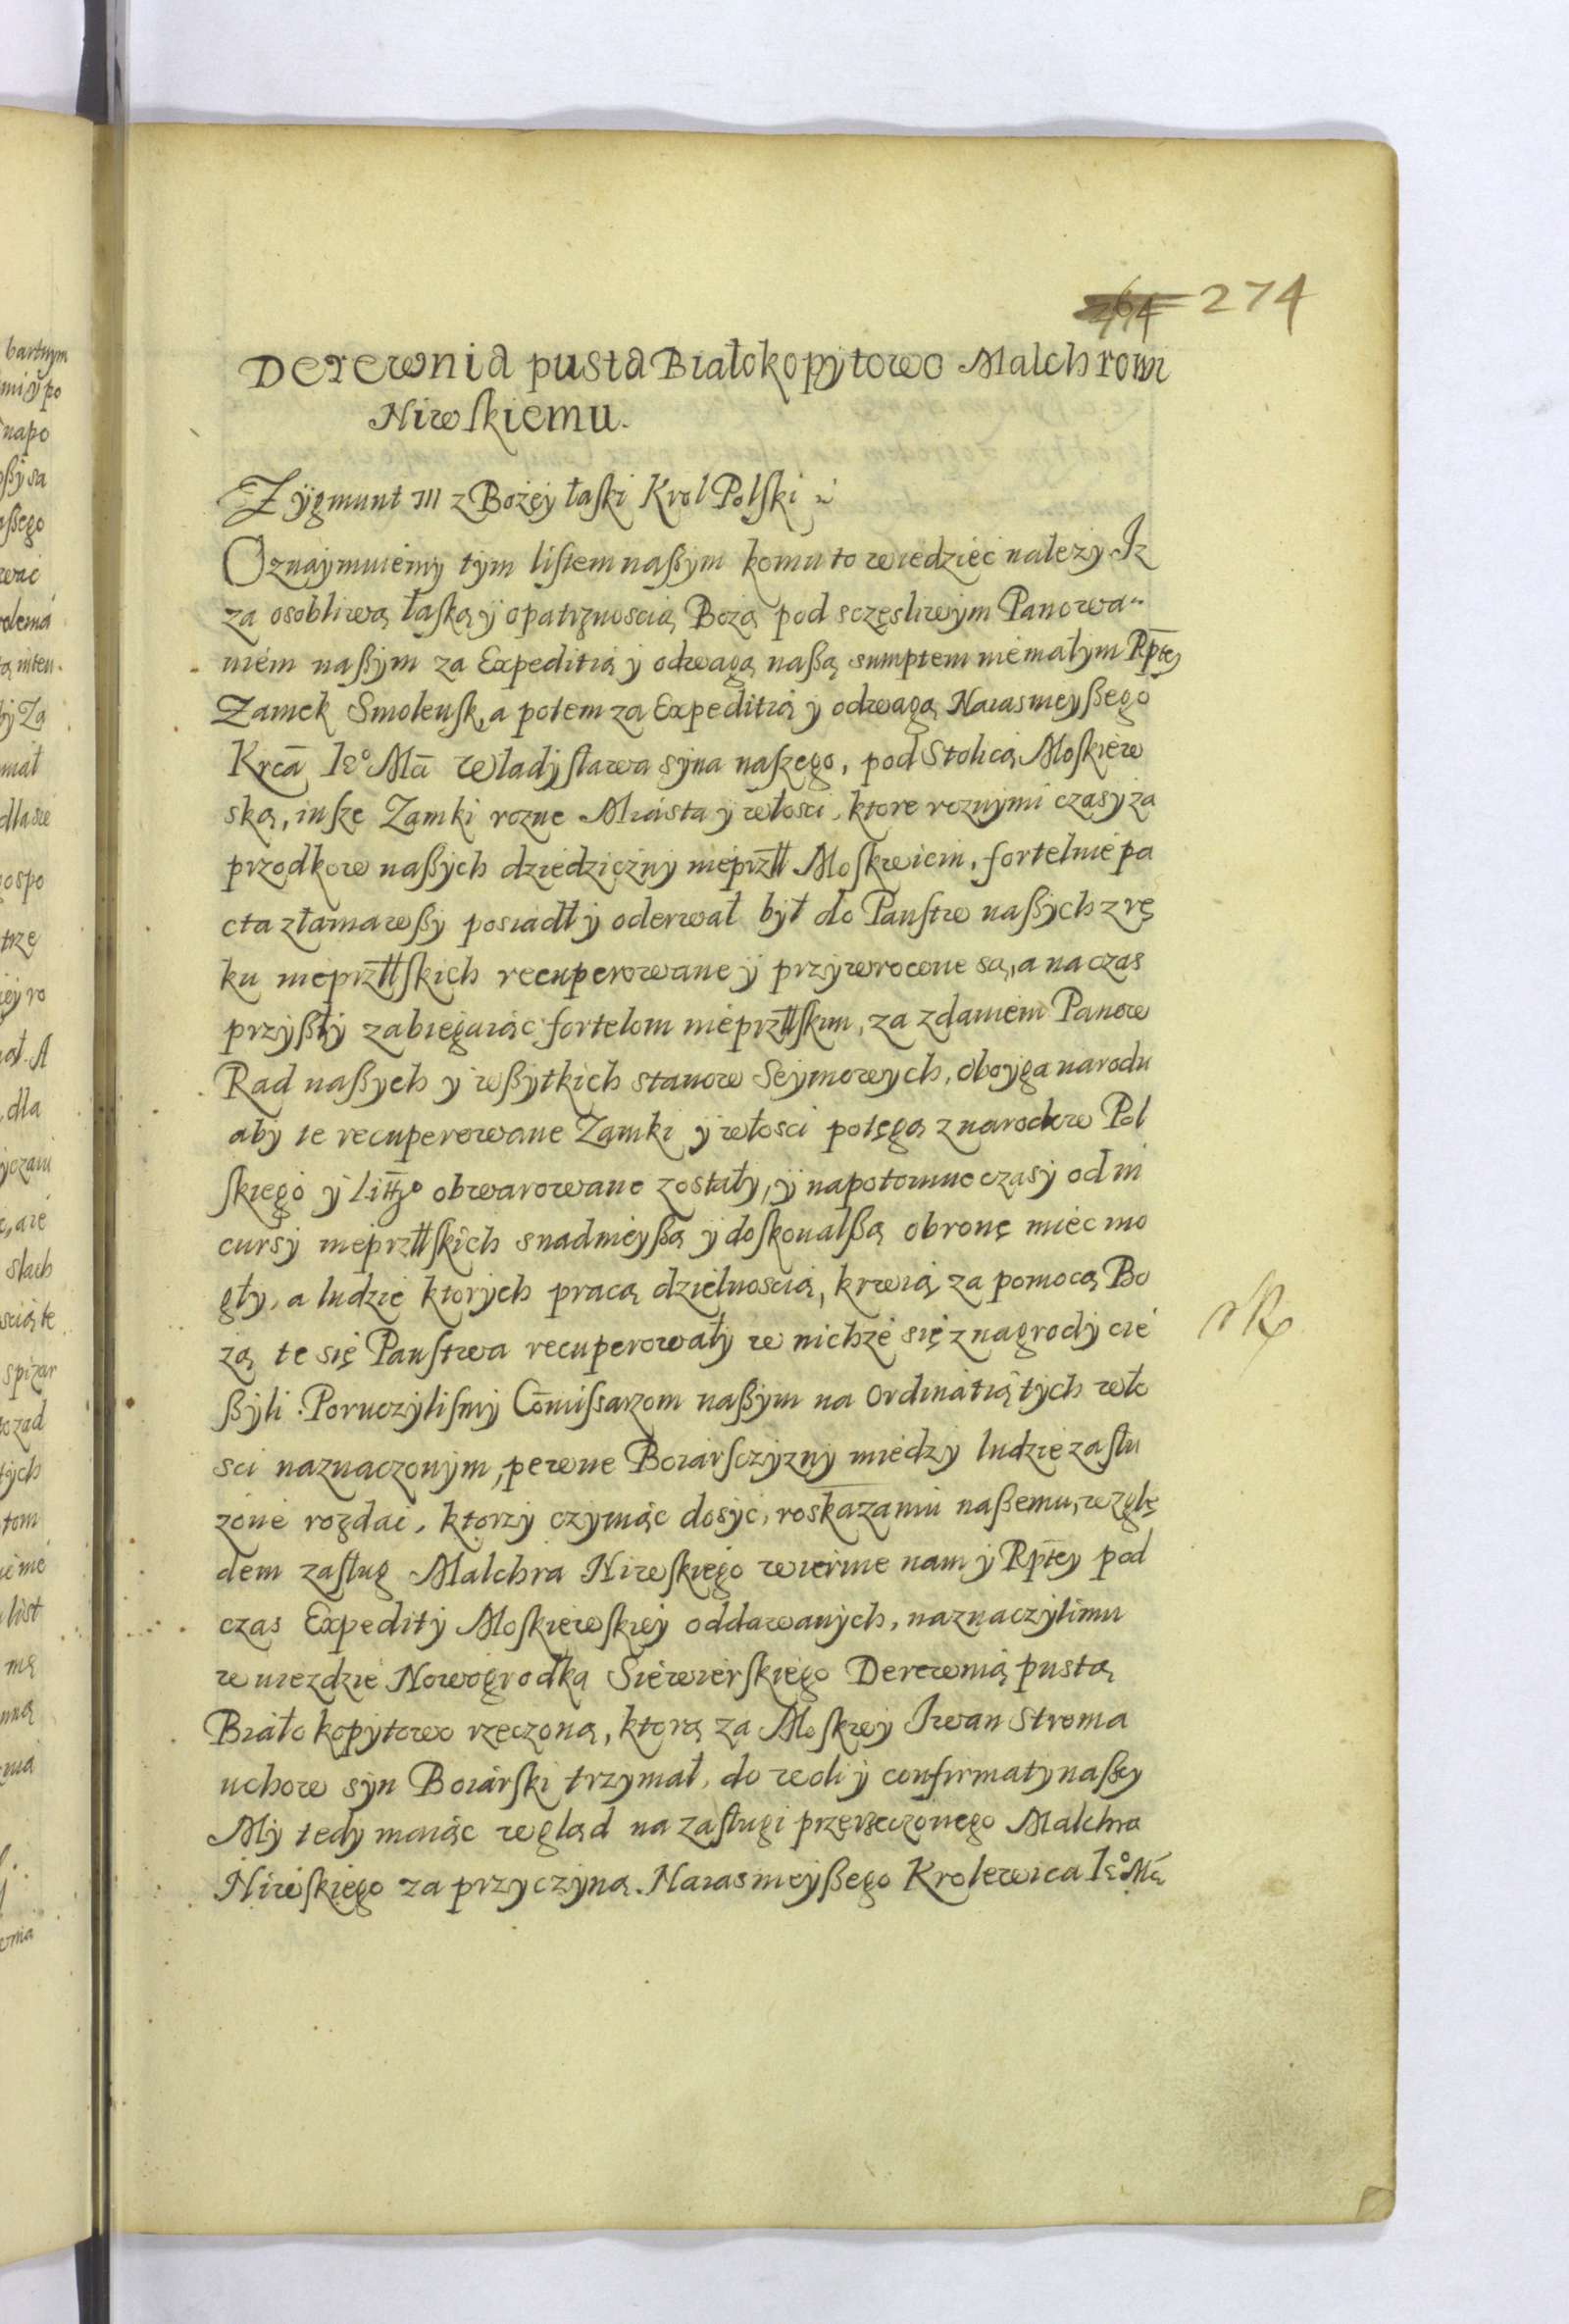 274
Derewnia pusta Białokopytowo Malchrowi
Niwskiemu.
Zygmunt III z Bożey łaski Krol Polski
Oznaymuiemy tym listem naßym komu to wiedzieć należy. Iż
za osobliwą łaską y opatrznoscią Bożą pod sczęsliwym Panowa-
niem naßym za Expeditią y odwagą naßą sumptem niemałym Rptey
Zamek Smolensk, a potem za Expeditią y odwagą Naiasnieyßego
Krca Ie° Mci Władysława syna naszego, pod Stolicą Moskiew
ską, insze Zamki rozne Miasta y włosci, ktore roznymi czasy za
przodkow naßych dziedziczny nieprztl Moskwicin, fortelnie pa
cta złamawßy posiadł y oderwał był do Panstw naßych z rę
ku nieprztlskich recuperowane y przywrocone są, a na czas
przyßły zabiegaiąc fortelom nieprztlskim, za zdaniem Panow
Rad naßych y wßytkich stanow Seymowych, oboyga narodu
aby te recuperowane Zamki y włosci potęgą z narodow Pol
skiego y Littgo obwarowane zostały, y napotomne czasy od in
cursy nieprztlskich snadnieyßą y doskonalßą obronę mieć mo
gły, a ludzie ktorych pracą dzielnoscią, krwią, za pomocą Bo
żą te się Panstwa recuperowały w nichże się z nagrody cie
ßyli. Poruczylismy Comissarzom naßym na Ordinatią tych wło
sci naznaczonym, pewne Boiarsczyzny miedzy ludzie zasłu
żone rozdać, ktorzy czyniąc dosyć, roskazaniu naßemu, wzglę
dem zasług Malchra Niwskiego wiernie nam y Rptey pod
czas Expedity Moskiewskiey oddawanych, naznaczyli mu
w uiezdzie Nowogrodka Siewierskiego Derewnią pustą
Białokopytowo rzeczoną, ktorą za Moskwy Iwan Stroma
uchow syn Boiarski trzymał, do woli y confirmaty naßey
My tedy maiąc wgląd na zasługi przerzeczonego Malchra
Niwskiego za przyczyną Naiasnieyßego Krolewica Ie° Mci